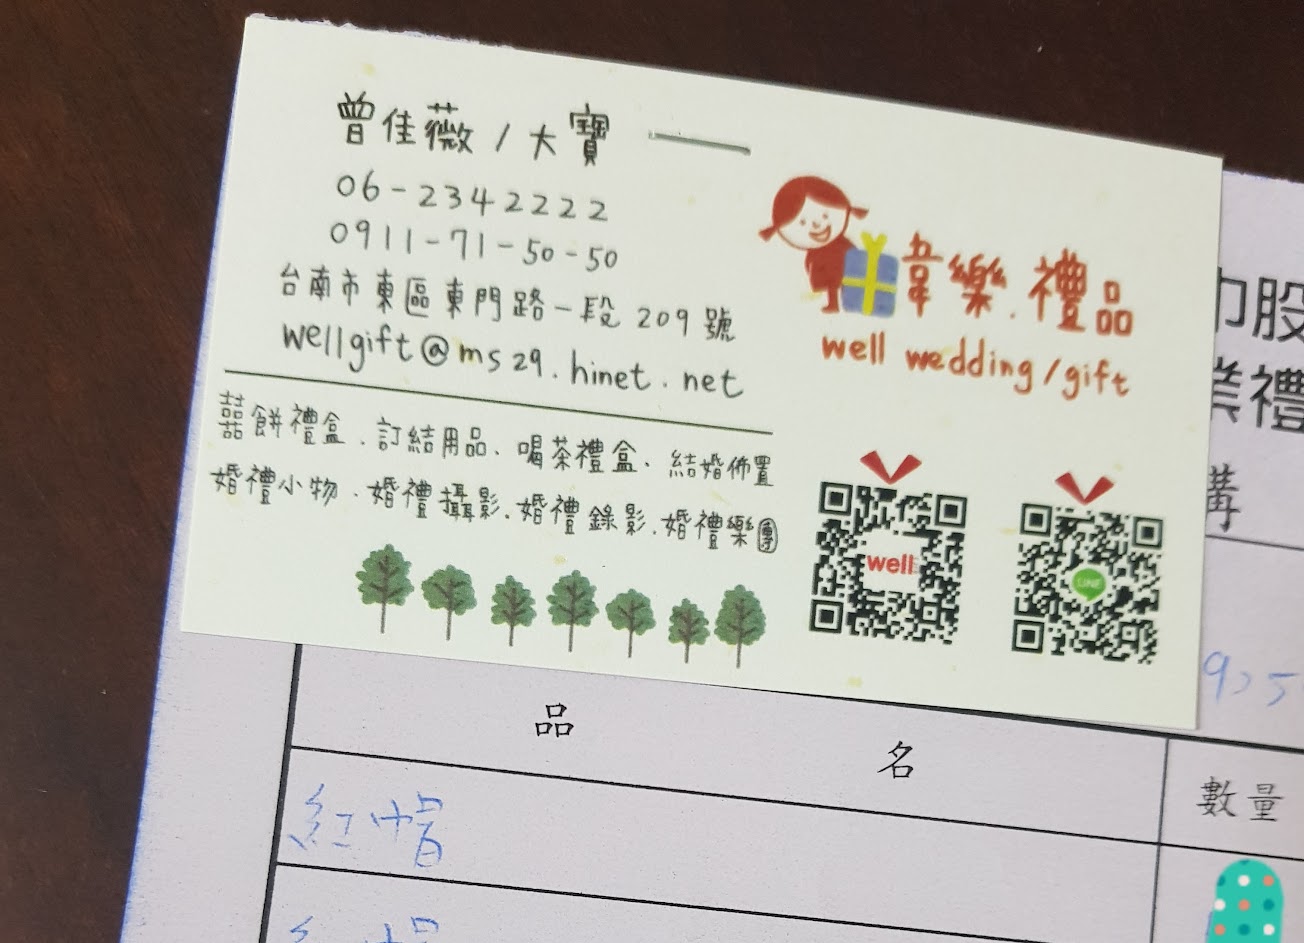 曾佳薇 / 大寶
06-2342222
0911-71-50-50
台南市東區東門路一段 209 號
wellgift@ms29.hinet.net
韋樂.禮品
well wedding/gift
囍餅禮盒.訂結用品.喝茶禮盒.結婚佈置
婚禮小物.婚禮攝影.婚禮錄影.婚禮樂團
well
LINE
巾股
業禮
購
品 名
數量
紅帽